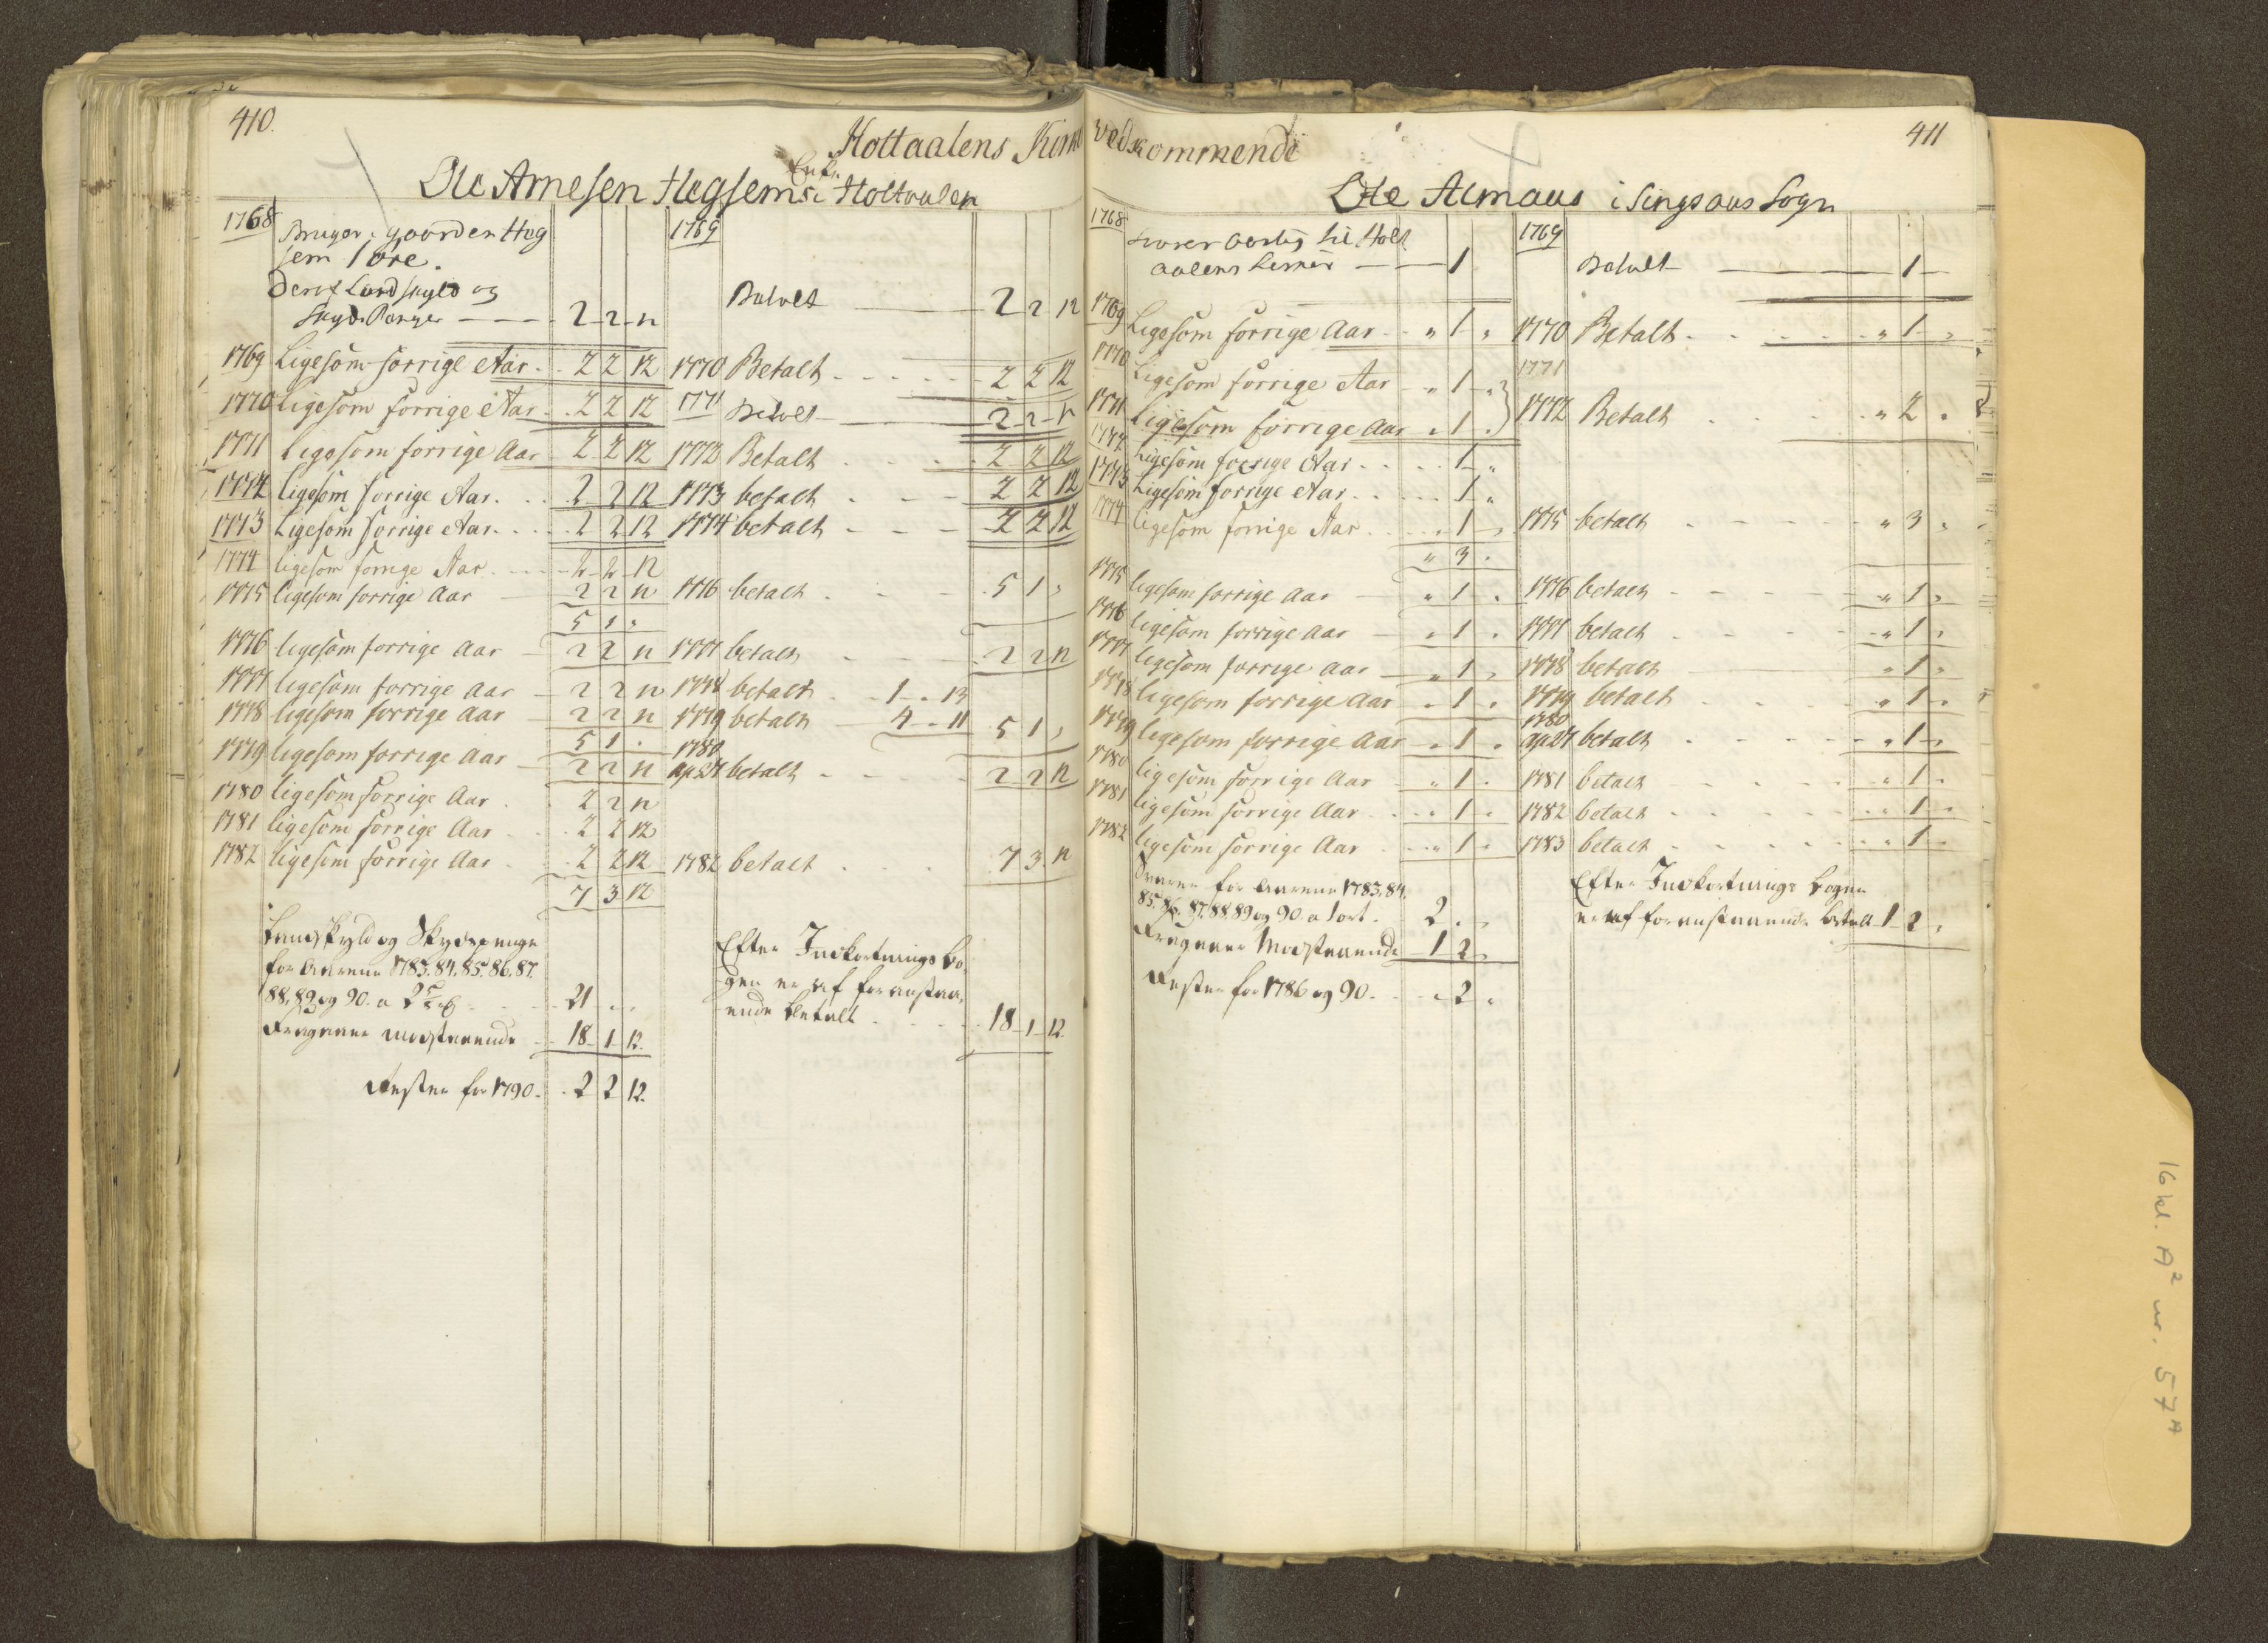 410.
Holtaalens Kirke
Ole Arnesen Hegsem i Holtaalen
Enke
1768 Bruger gaarden Heg
sem 1 øre.
Deraf Landskyld og
Skyds Penger — 2 2 12
1769 Ligesom forrige Aar . 2 2 12
1770 Ligesom forrige Aar . 2 2 12
1771 Ligesom forrige Aar 2 2 12
1772 ligesom forrige Aar . . 2 2 12
1773 Ligesom forrige Aar . . 2 2 12
1774 ligesom forrige Aar . . 2 2 12
1775 ligesom forrige Aar — 2 2 12
5 1 "
1776 ligesom forrige Aar — 2 2 12
1777 ligesom forrige Aar — 2 2 12
1778 ligesom forrige Aar — 2 2 12
5 1 .
1779 ligesom forrige Aar — 2 2 12
1780 ligesom forrige Aar . 2 2 12
1781 ligesom forrige Aar . . 2 2 12
1782 ligesom forrige Aar . . 2 2 12
7 3 12
Landskyld og Skydspenge
for Aarene 1783. 84. 85. 86. 87.
88, 89 og 90. a . . 21 . .
Fragaaer modstaaende . . 18 1 12.
Rester for 1790 . . 2 2 12.
1769
Betalt — 2 2 12
1770 Betalt . . . . . 2 2 12
1771 Betalt — 2 2 12
1772 Betalt . . . . 2 2 12
1773 betalt . . . 2 2 12
1774 betalt . . . 2 2 12
1776 betalt . . . . 5 1 "
1777 betalt . . . 2 2 12
1778 betalt . . 1 " 13
1779 betalt — 4 " 11 5 1 "
1780
Ap 27 betalt . . . . 2 2 12
1782 betalt . . . . 7 3 12
Efter Indkortnings Bo-
gen er af foranstaa-
ende betalt . . . . 18 1 12.
411
Vedkommende
Ole Almaas i Singsaas Sogn
1768 Svarer Aarlig til Holt
aalens Kirke — 1
1769 Ligesom forrige Aar . . " 1 "
1770 Ligesom forrige Aar . " 1 "
1771 Ligesom forrige Aar " 1 "
1772 Ligesom forrige Aar . . . . 1 "
1773 Ligesom forrige Aar . . . . 1 "
1774 ligesom forrige Aar . . . . 1 "
" 3 .
1775 ligesom forrige Aar — " 1 .
1776 ligesom forrige Aar — " 1 .
1777 ligesom forrige Aar — " 1 "
1778 ligesom forrige Aar . " 1 .
1779 ligesom forrige Aar — " 1 .
1780 ligesom forrige Aar . . " 1 .
1781 ligesom forrige Aar . . " 1 .
1782 ligesom forrige Aar . . " 1 .
Svarer for Aarene 1783. 84.
85. 86. 87. 88. 89 og 90 a 1 ort . 2 . "
Fragaaer Modstaaende 1 2 "
Rester for 1786 og 90 . . " 2 "
1769
Betalt — 1 —
1770 Betalt . . . . . . " 1 "
1771
1772 Betalt . . . . " 2 "
1775 betalt . . . . . " 3 "
1776 betalt . . . . . " 1 "
1777 betalt . . . . . " 1 "
1778 betalt — " 1 "
1779 betalt . . . . " 1 "
1780
Ap 27 betalt . . . . . " 1 "
1781 betalt . . . . " 1 .
1782 betalt . . . . . " 1 "
1783 betalt . . . . . " 1 .
Efter Indkortnings Bogen
er af foranstaaende betalt 1 2 "
16 kl. A² nr. 57 A